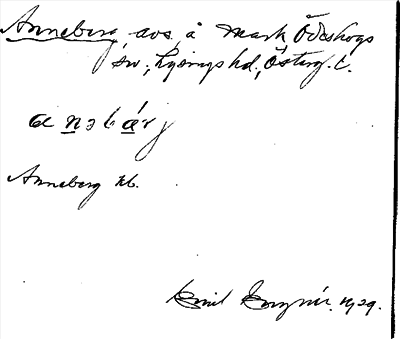 Anneberg, avs. å mark Ödeshögs
sn; Lysings hd., Österg. l.
anəbárj
Anneberg kb.
Emil 1929.